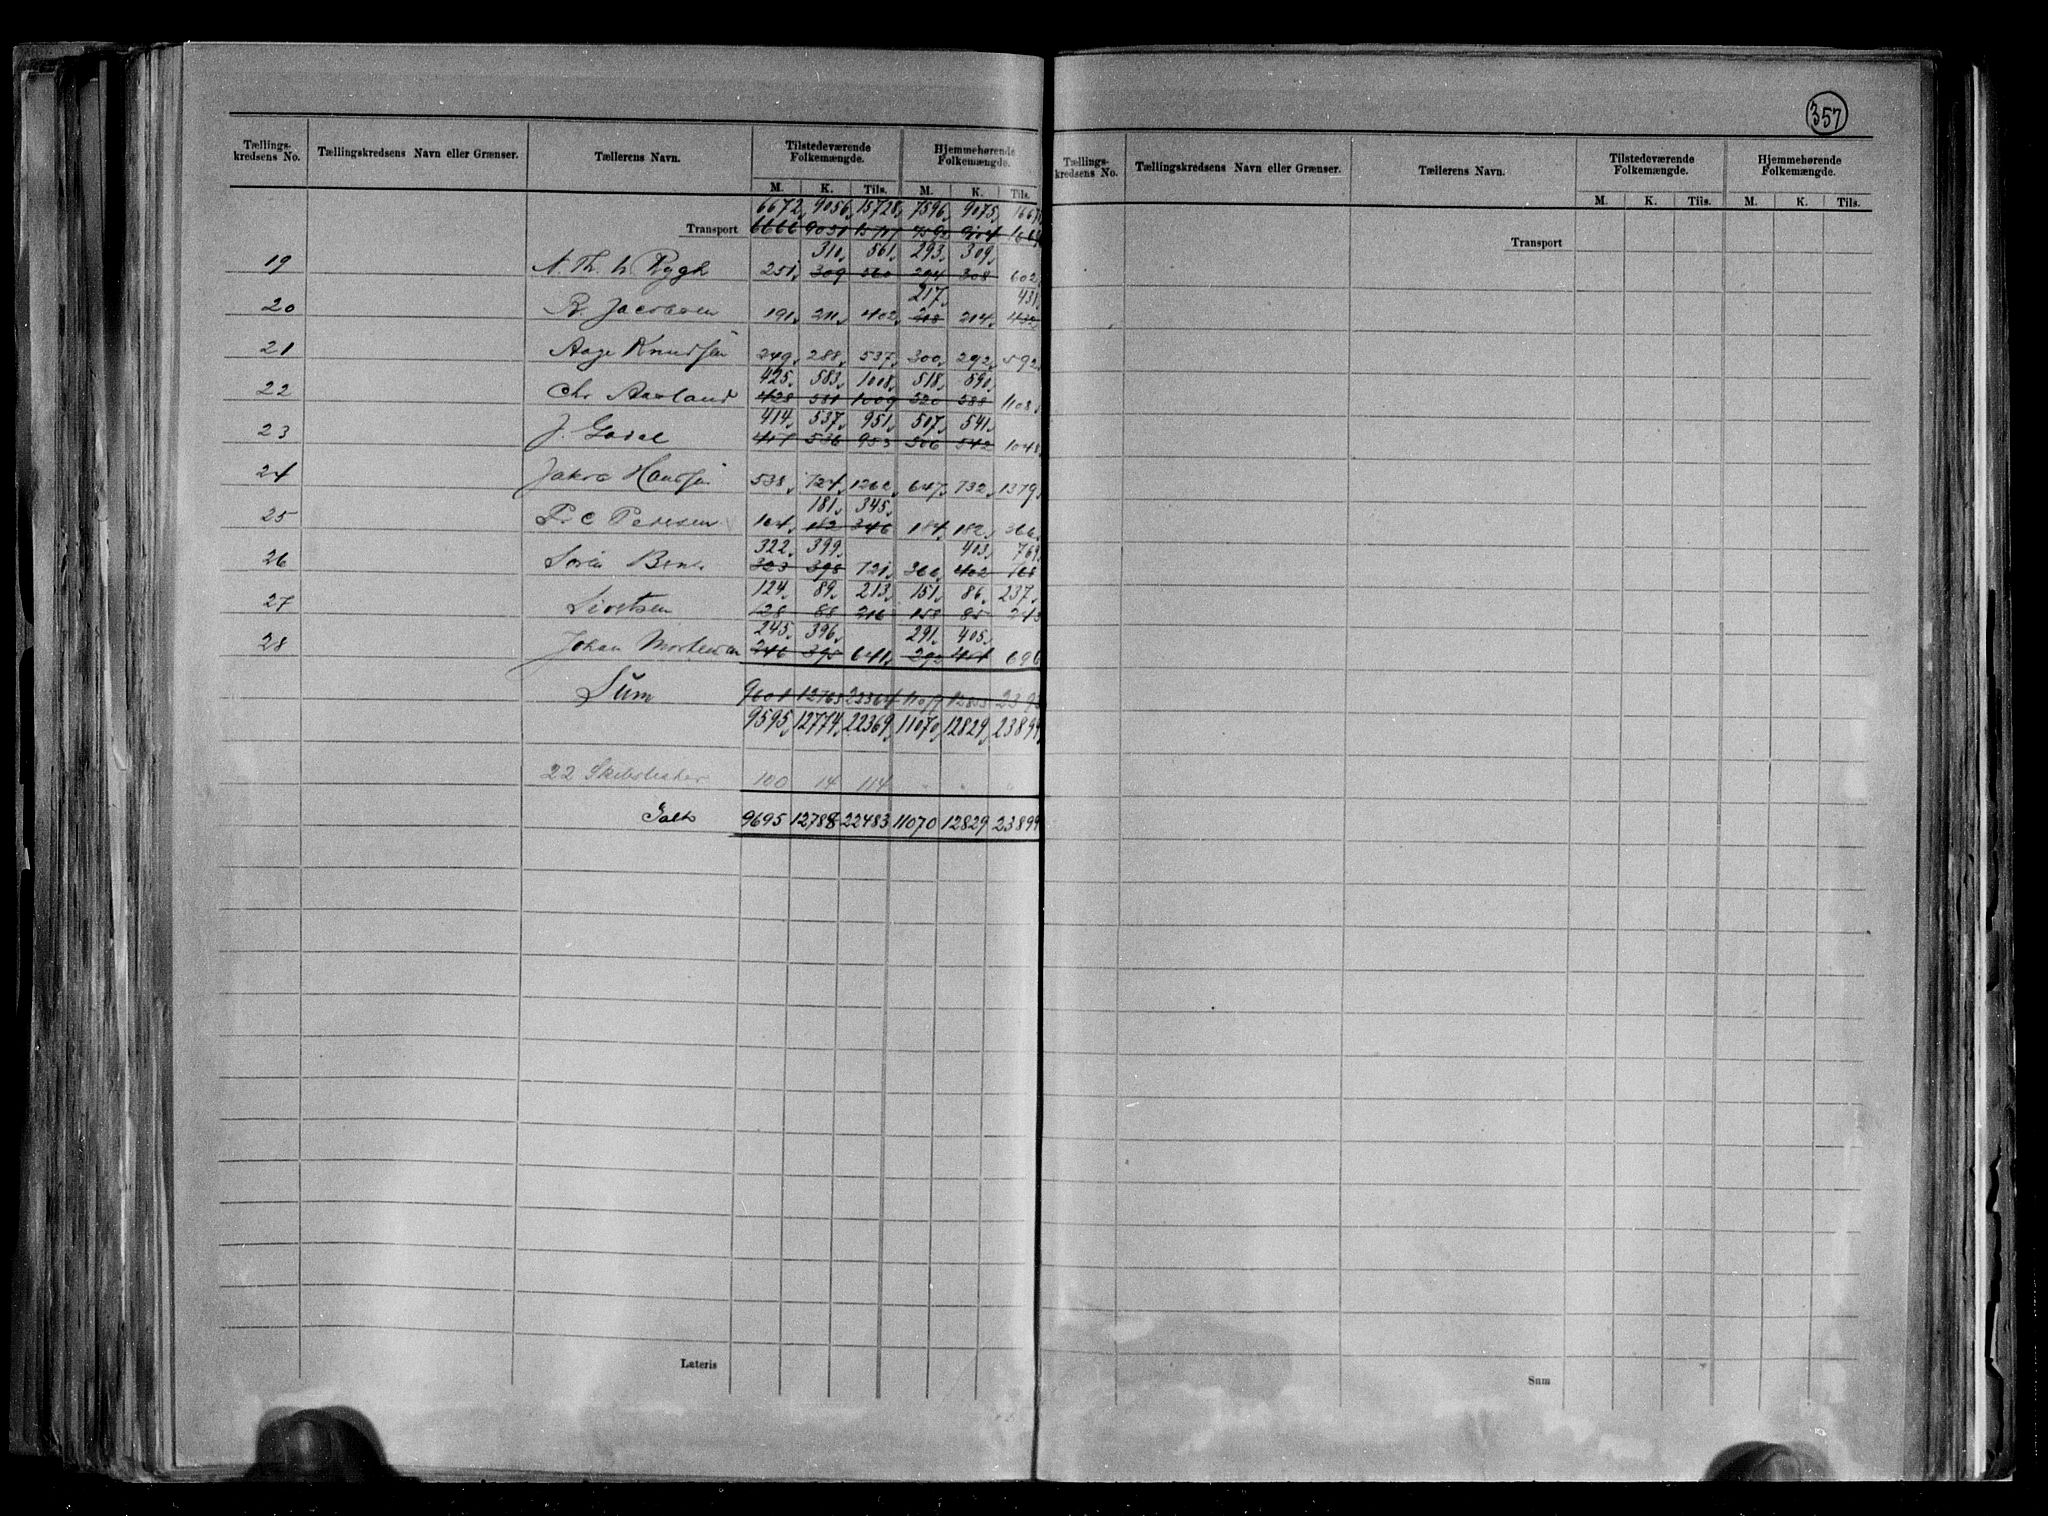 357
Tællings-kredsens No. Tællingskredsens Navn eller Grænser. Tællerens Navn. Tilstedeværende Folkemængde. Hjemmehørende Folkemængde.
M. K. Tils. M. K. Tils.
6672 9056 15728 7596 9075
Transport 6666 9051 15717
310 561 293 309
19 N. Th. Rygh 251 309 560 294 308 602
217 431
20 R. Jacobsen 191 211 402 218 214 432
21 Aage Knudsen 249 288 537 300 292 592
425 583 1008 518 590
22 Chr Aarland 428 581 1009 520 588 1108
414 537 951 507 541
23 J. 417 536 953 506 542 1048
24 Jakob Hansen 538 724 1262 647 732 1379
181 345
25 Fr C Pedersen 164 182 346 184 182 366
322 399 403 769
26 Sören 323 398 721 366 402 768
124 89 213 151 86 237
27 Sivertsen 128 88 216 158 85 243
245 396 291 405
28 Johan Mortensen 246 395 641 292 404 696
Sum 9601 12763 22364 11077
9595 12774 22369 11070 12829 23899
22 100 14 114
Ialt 9695 12788 22483 11070 12829 23899
Lateris
Tællings-kredsens No. Tællingskredsens Navn eller Grænser. Tællerens Navn. Tilstedeværende Folkemængde. Hjemmehørende Folkemængde.
M. K. Tils. M. K. Tils.
Transport
Sum